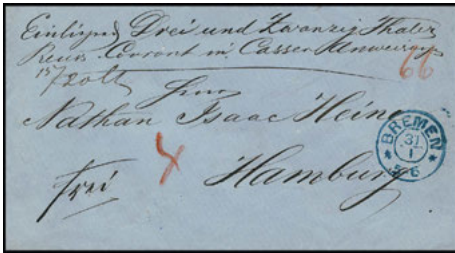 Einliegend Drei und Zwanzig Thaler
Preuss. Courant in Cassen Anweisung
66
Nathan Isaac Heine
BREMEN
31
1
5-6
Hamburg
frei